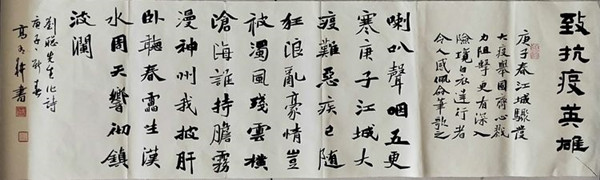 致抗疫英雄
庚子春江城驟發
大疫舉國齊心戮
力阻擊更有深入
險境白衣逆行者
令人感佩命筆歌之
喇叭聲咽五更
寒庚子江城大
疫難惡疾已随
狂浪亂豪情豈
被濁風殘雲橫
滄海誰持膽霧
漫神州我披肝
卧聽春雷生漠
水周天響彻鎮
波瀾
劉聪先生作詩
庚子新春
書